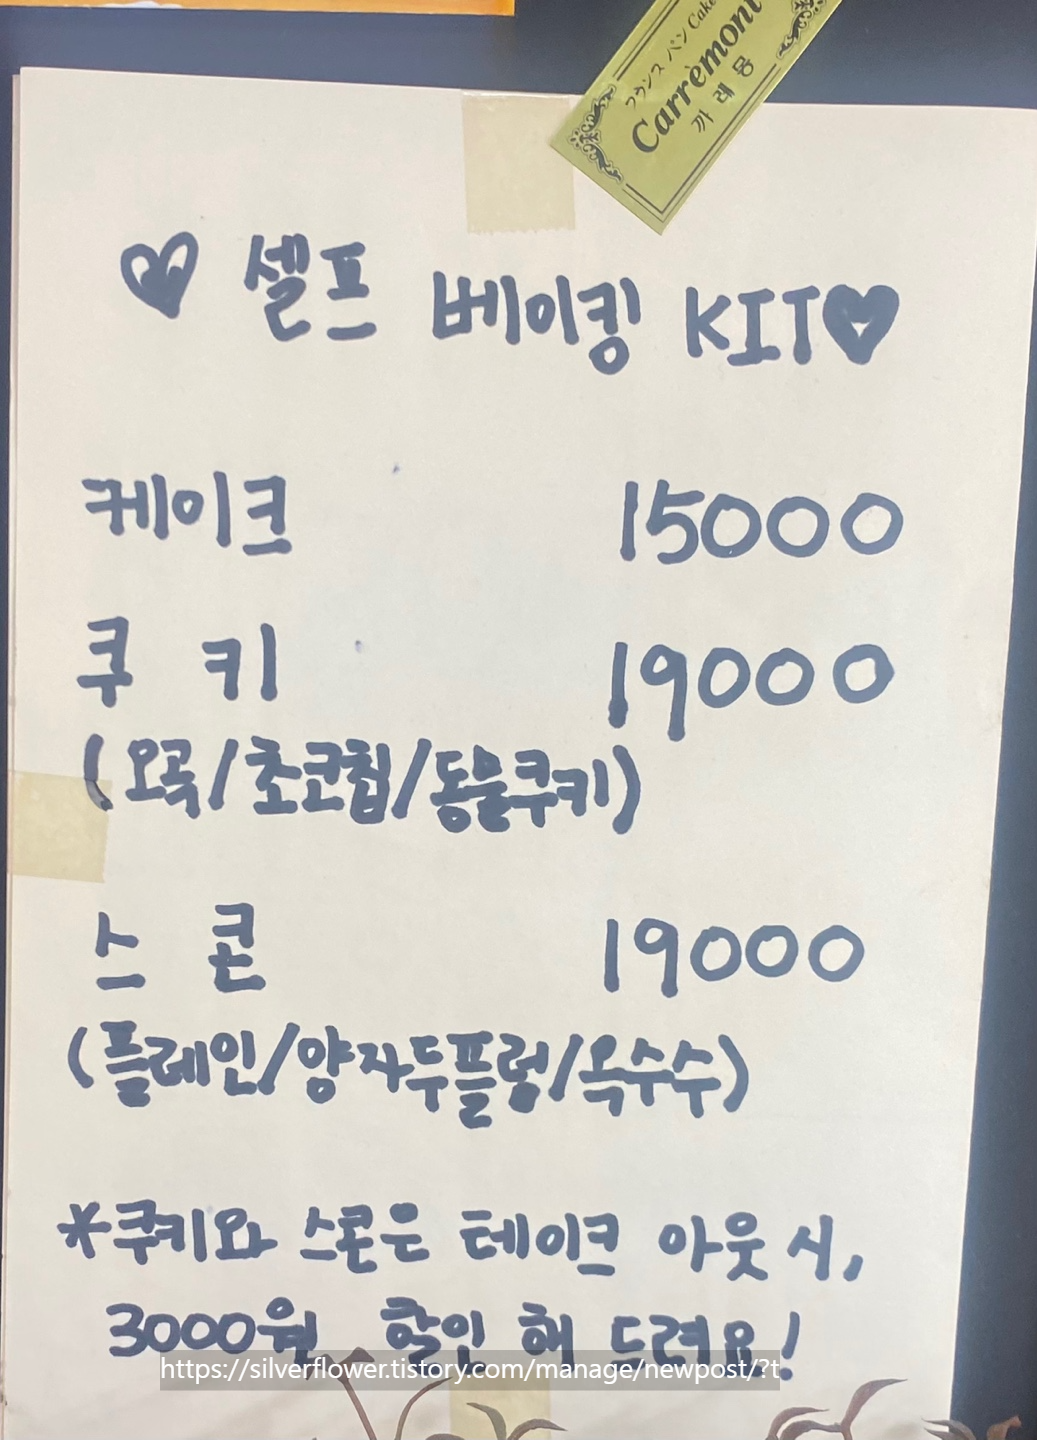 フランス パン Cake
Carrèmont
까레몽
♡ 셀프 베이킹 KIT♥
케이크 15000
쿠 키 19000
(오곡/초코칩/동물쿠키)
스 콘 19000
(플레인/양자두플럼/옥수수)
*쿠키와 스콘은 테이크 아웃 시,
3000원 할인 해 드려요!
https://silverflower.tistory.com/manage/newpost/?t